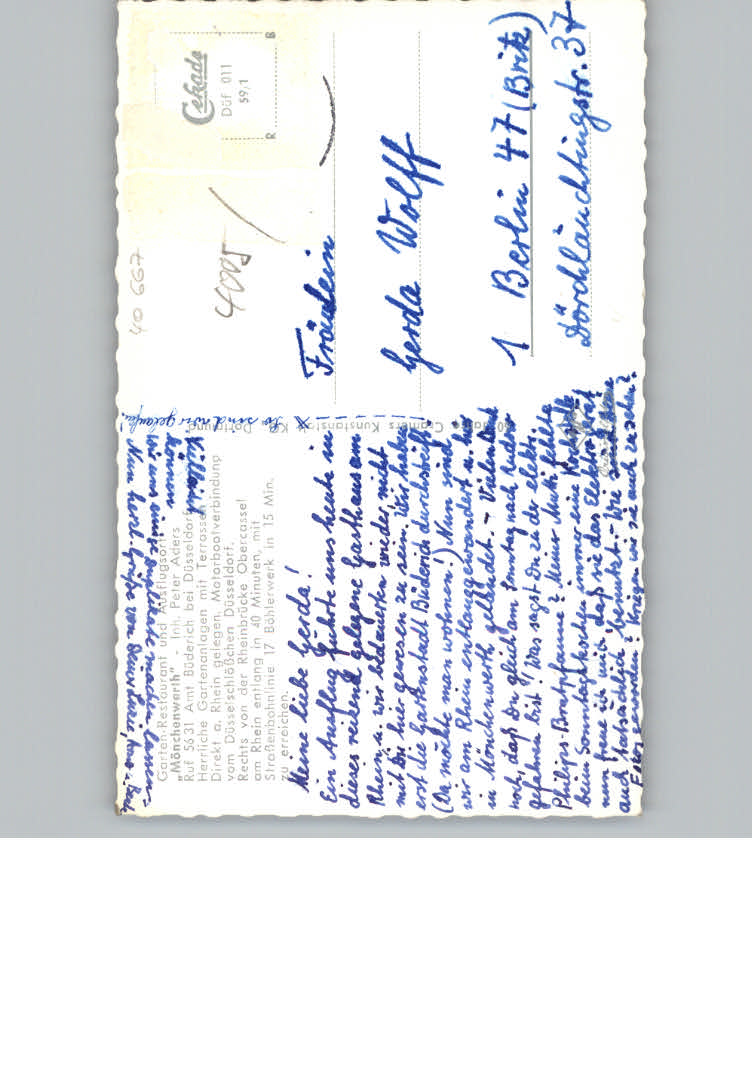 Garten-Restaurant und Ausflugsort
„Mönchenwerth" - Inh. Peter Aders
Ruf 5631 Amt Büderich bei Düsseldorf
Herrliche Gartenanlagen mit Terrassen
Direkt a. Rhein gelegen. Motorbootverbindung
vom Düsselschlößchen Düsseldorf.
Rechts von der Rheinbrücke Obercassel
am Rhein entlang in 40 Minuten, mit
Straßenbahnlinie 17 Böhlerwerk in 15 Min.
zu erreichen.
Meine liebe Gerda!
Ein Ausflug führte uns heute in
dieses reizend gelegene Gasthaus am
Rhein u. wir bedauerten wieder, nicht
mit Dir hier gewesen zu sein. Wir haben
erst die Gartenstadt Büderich durchstreift
(Da möchte man wohnen!) Nun sind
wir am Rhein entlanggewandert u. hier
in Mönchenwerth gelandet. - Vielen Dank
noch, daß Du gleich am Montag nach
gefahren bist! Was sagst Du zu der elekt.
Philips-Bratpfanne? Meiner Mutti fehlte
beim Sonntagskochen immer eine Kochstelle
nun freue ich mich, daß sie das Elektrobrat
auch tatsächlich benutzt. - Die
kriegen wir sie auch zu sehen?
Vielleicht
können
wir uns einige gemütliche machen lassen
Nun herzl. Grüße von Deiner
So sind wir gelaufen!
Cramers Kunstanstalt KG. Dortmund
40 667
4005
Cekade
Düf 011
59/1
R
B
Fräulein
Gerda Wolff
1 Berlin 47 (Britz)
Dörchläuchtingstr. 37